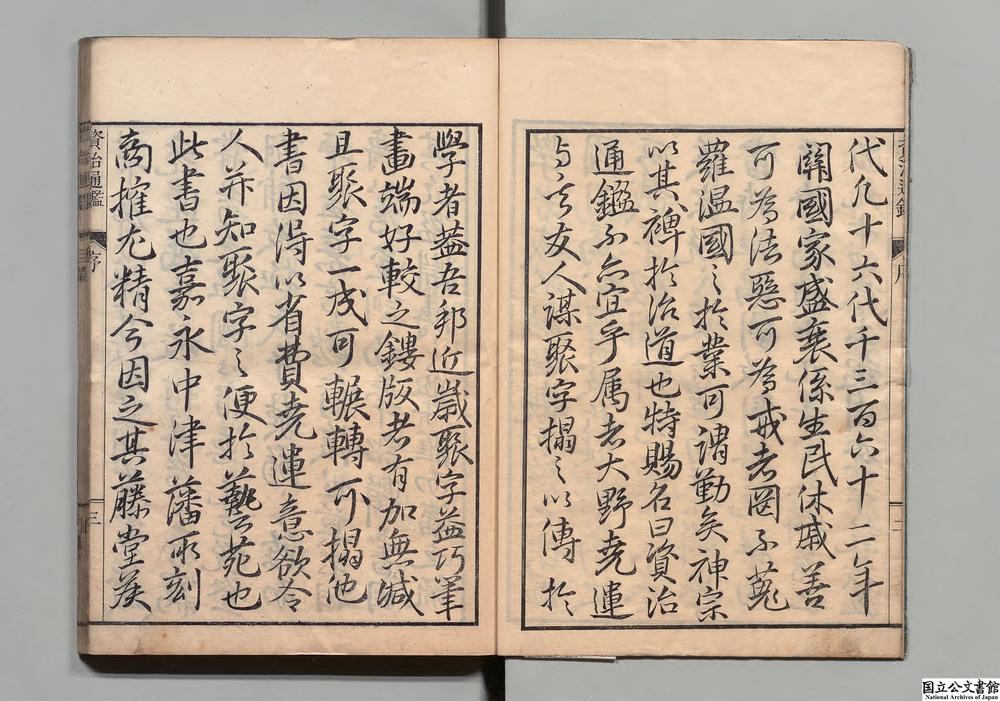 代凡十六代千三百六十二年
關國家盛衰係生民休戚善
可為法惡可為戒者罔不蒐
羅溫國之於業可謂勤矣神宗
以其裨於治道也特賜名曰資治
通鑑不亦宜乎属者大野堯運
与其友人謀聚字搨之以傳於
學者蓋吾邦近歲聚字益巧筆
畫端好較之鏤版者有加無減
且聚字一成可輾轉可搨他
書因得以省費堯運意欲令
人并知聚字之便於藝苑也
此書也嘉永中津藩所刻
商搉尤精今因之其藤堂矦
資治通鑑
序
三
国立公文書館
National Archives of Japan